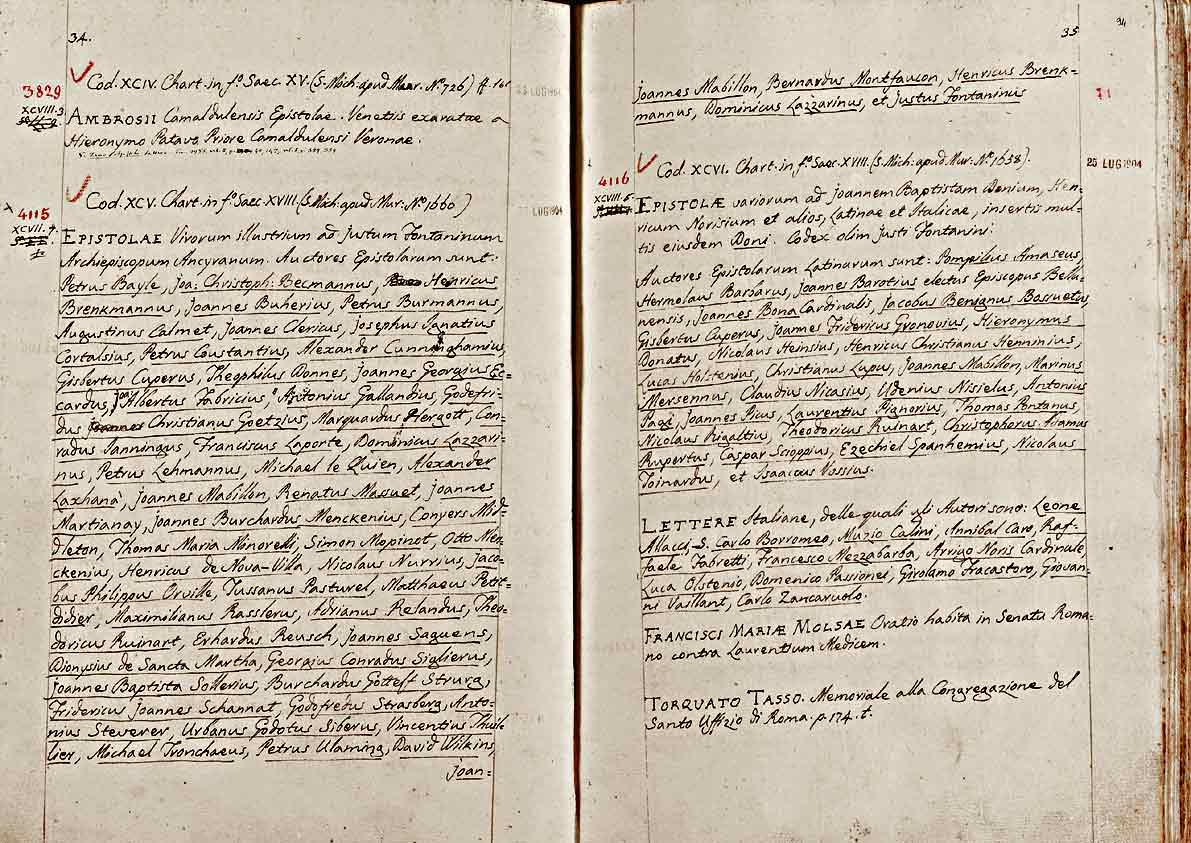 34.
Cod. XCIV. Chart. in fº. Saec. XV. (S. Mich. apud Mur. Nº. 726) ff. 161
3829
XCVIII. 3
23 LUG 1904
AMBROSII Camaldulensis Epistolae. Venetiis exaratae a
Hieronymo Patavo Priore Camaldulensi Veronae.
Cod. XCV. Chart. in fº. Saec. XVIII. (S. Mich. apud Mur. Nº. 1660)
4115
XCVII. 4.
LUG 1904
EPISTOLAE Virorum illustrium ad Justum Fontaninum
Archiepiscopum Ancyranum. Auctores Epistolarum sunt:
Petrus Bayle, Joa: Christoph: Becmannus, Henricus
Brenkmannus, Joannes Buherius, Petrus Burmannus,
Augustinus Calmet, Joannes Clericus, Josephus Ignatius
Cortalsius, Petrus Coustantius, Alexander Cunninghamius,
Gisbertus Cuperus, Theophilus Donnes, Joannes Georgius Ec-
cardus, Joa Albertus Fabricius, Antonius Gallandius, Godefri-
dus Joannes Christianus Goetzius, Marquardus Hergott, Con-
radus Janningus, Franciscus Laporte, Dominicus Lazzari-
nus, Petrus Lehmannus, Michael le Quien, Alexander
Laxhana, Joannes Mabillon, Renatus Massuet, Joannes
Martianay, Joannes Burchardus Menckenius, Conyers Mid-
dleton, Thomas Maria Minorelli, Simon Mopinot, Otto Men-
ckenius, Henricus de Nova-Villa, Nicolaus Nurrius, Jaco-
bus Philippus Orville, Tussanus Pasturel, Matthaeus Petit-
didier, Maximilianus Rasslerus, Adrianus Relandus, Theo-
doricus Ruinart, Erhardus Reusch, Joannes Saguens,
Dionysius de Sancta Martha, Georgius Conradus Siglierus,
Joannes Baptista Sollerius, Burchardus Gottelf Struvg,
Fridericus Joannes Schannat, Godofredus Strasberg, Anto-
nius Steverer, Urbanus Godotus Siberus, Vincentius Thuil-
lier, Michael Tronchaeus, Petrus Ulaming, David Wilkins,
Joan-
35
34
Joannes Mabillon, Bernardus Montfaucon, Henricus Brenk-
mannus, Dominicus Lazzarinus, et Justus Fontaninus
71
Cod. XCVI. Chart. in fº. Saec. XVIII. (S. Mich: apud Mur. Nº. 1658).
4116
XCVIII. 5.
25 LUG 1904
EPISTOLÆ variorum ad Joannem Baptistam Donium, Hen-
ricum Norisium et alios, Latinae et Italicae, insertis mul-
tis eiusdem Doni. Codex olim Justi Fontanini.
Auctores Epistolarum Latinarum sunt: Pompilius Amaseus,
Hermolaus Barbarus, Joannes Barotius electus Episcopus Bellu-
nensis, Joannes Bona Cardinalis, Jacobus Benignus Bossuetus,
Gisbertus Cuperus, Joannes Fridericus Gronovius, Hieronymus
Donatus, Nicolaus Heinsius, Henricus Christianus Henninius,
Lucas Holstenius, Christianus Lupus, Joannes Mabillon, Marinus
Mersennus, Claudius Nicasius, Udenius Nisielus, Antonius
Pagi, Joannes Picus, Laurentius Pignorius, Thomas Pontanus,
Nicolaus Rigaltius, Theodoricus Ruinart, Christophorus Adamus
Rupertus, Caspar Scioppius, Ezechiel Spanhemius, Nicolaus
Toinardus, et Isaacus Vossius.
LETTERE Italiane, delle quali gli Autori sono: Leone
Allacci, S. Carlo Borromeo, Muzio Calini, Annibal Caro, Raf-
faele Fabretti, Francesco Mezzabarba, Arrigo Noris Cardinale,
Luca Olstenio, Domenico Passionei, Girolamo Fracastoro, Giovan-
ni Vaillant, Carlo Zancaruolo.
FRANCISCI MARIÆ MOLSAE Oratio habita in Senatu Roma-
no contra Laurentium Medicem.
TORQUATO TASSO. Memoriale alla Congregazione del
Santo Uffizio di Roma. p. 174. t.